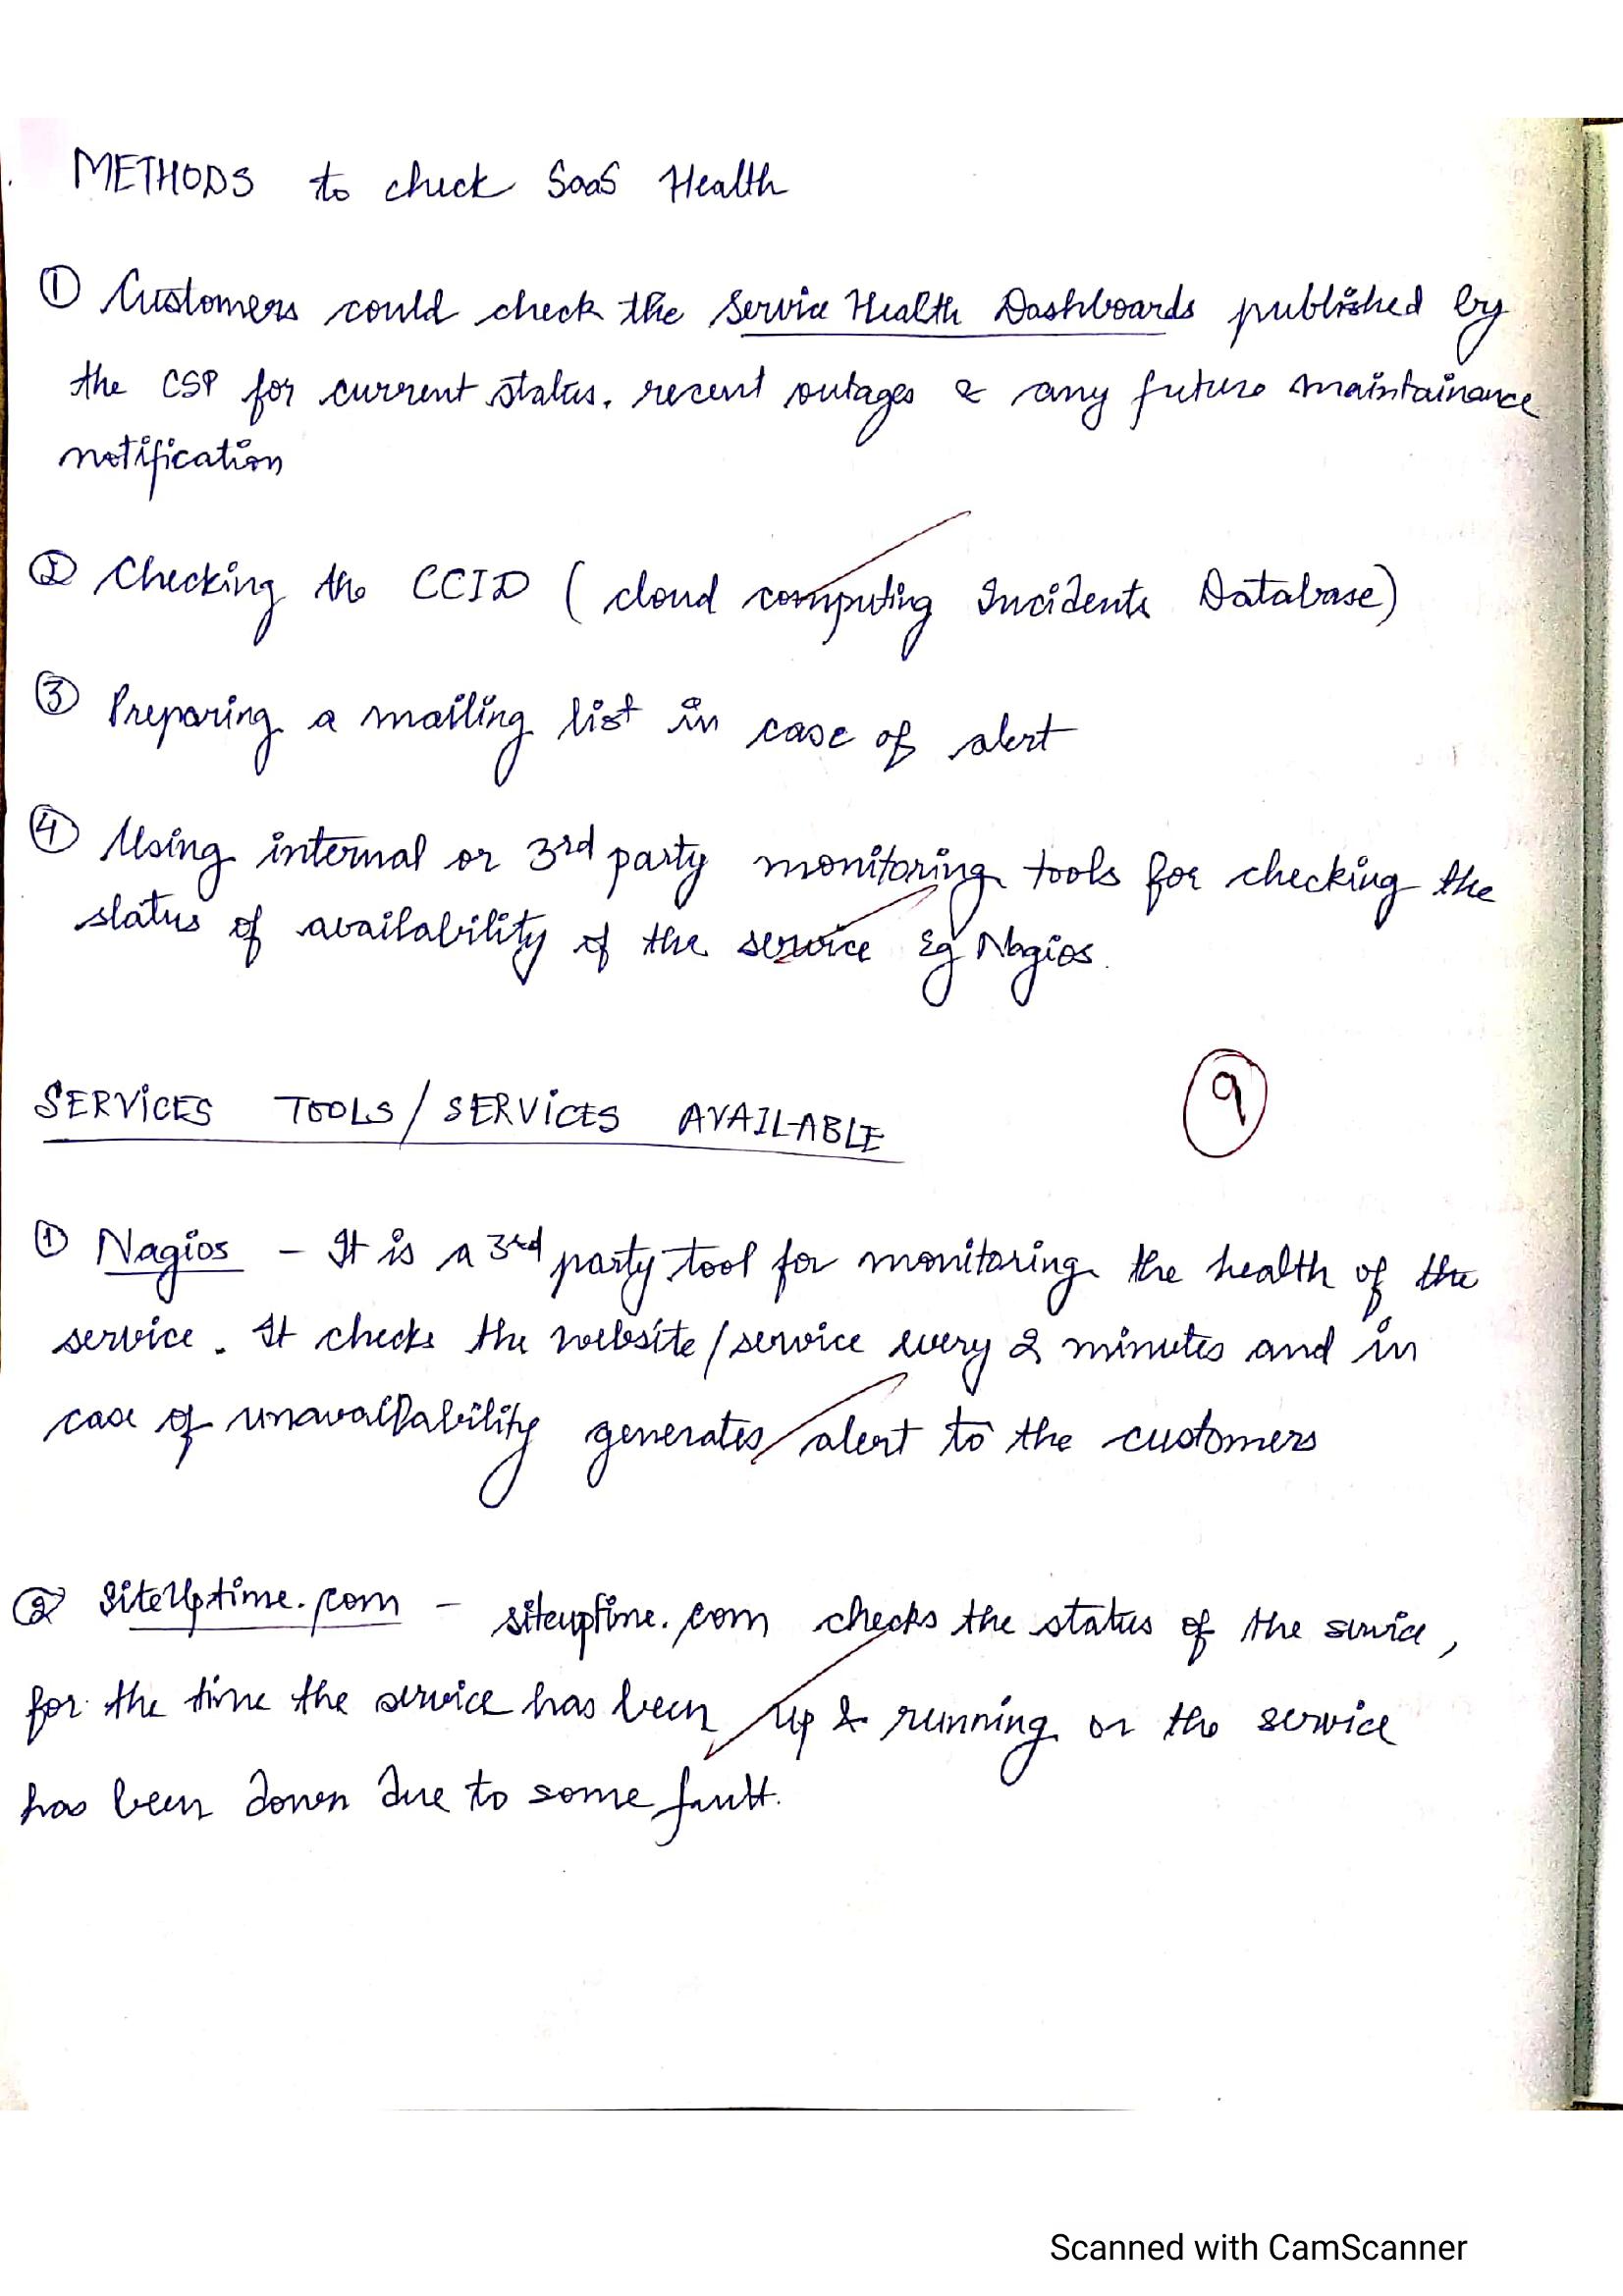 METHODS to check SaaS Health
① Customers could check the Service Health Dashboards published by
the CSP for current status, recent outages & any future maintainance
notification
② Checking the CCID (cloud computing Incidents Database)
③ Preparing a mailing list in case of alert
④ Using internal or 3rd party monitoring tools for checking the
status of availability of the service Eg Nagios.
9
SERVICES TOOLS/SERVICES AVAILABLE
① Nagios - It is a 3rd party tool for monitoring the health of the
service. It checks the website/service every 2 minutes and in
case of unavailability generates alert to the customers
② SiteUptime.com - siteuptime.com checks the status of the service,
for the time the service has been up & running or the service
has been down due to some fault.
Scanned with CamScanner